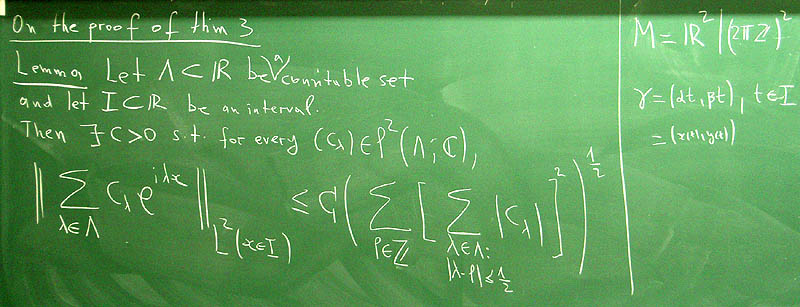 On the proof of thm 3
Lemma Let Λ ⊂ ℝ be a countable set
and let I ⊂ ℝ be an interval.
Then ∃ C>0 s.t. for every (c_λ) ∈ ℓ²(Λ; ℂ),
‖ ∑_{λ∈Λ} c_λ e^{iλx} ‖_{L²(x∈I)} ≤ C ( ∑_{ρ∈ℤ} [ ∑_{λ∈Λ: |λ-ρ|≤1/2} |c_λ| ]² )^{1/2}
M = ℝ² / (2πℤ)²
γ = (αt, βt), t∈I
= (x(t), y(t))